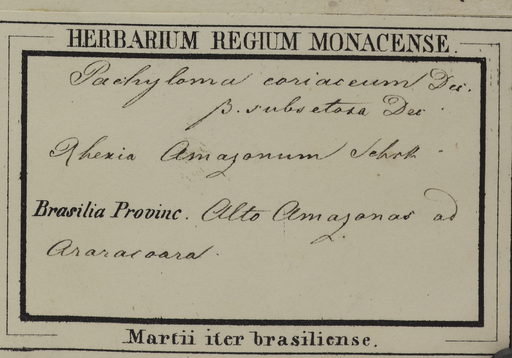 HERBARIUM REGIUM MONACENSE.
Pachyloma coriaceum Dec.
β. subsetosa Dec
Rhexia Amazonum Schrk
Brasilia Provinc. Alto Amazonas ad
Araracoara.
Martii iter brasiliense.